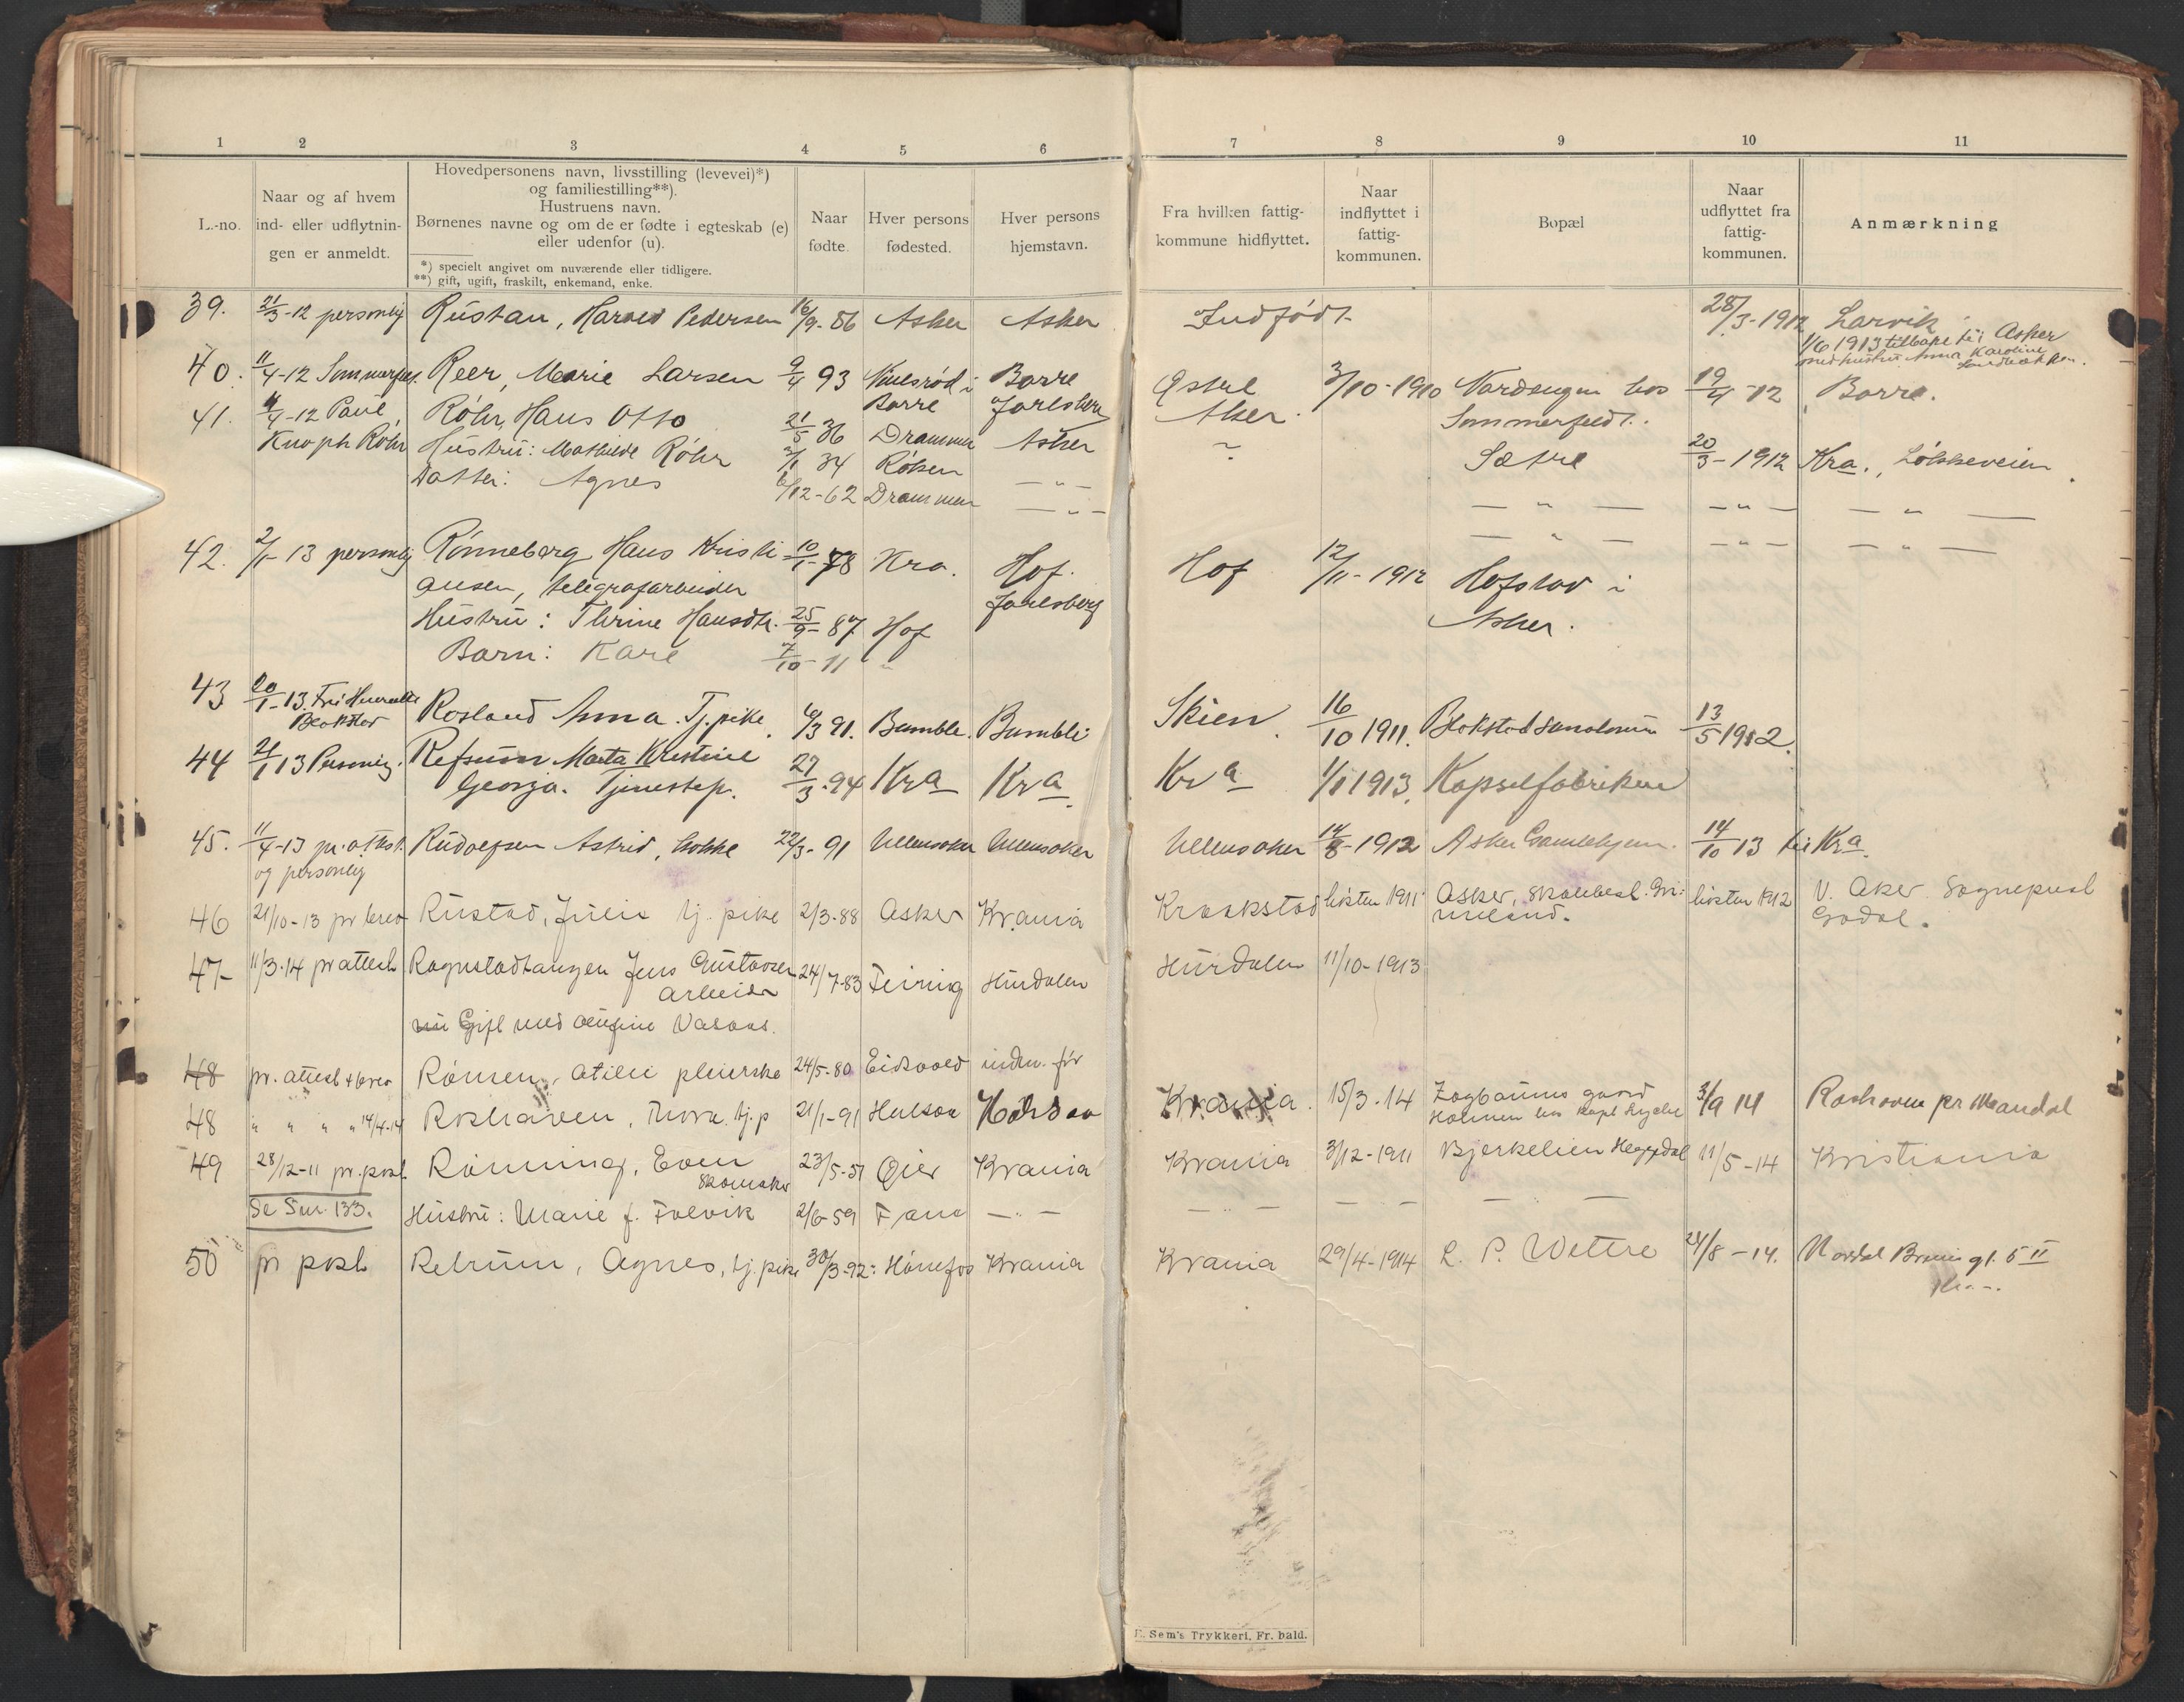 1 2 3 4 5 6 7 8 9 10 11
L.-no.
Naar og af hvem
ind- eller udflytnin-
gen er anmeldt.
Hovedpersonens navn, livsstilling (levevei)*)
og familiestilling**).
Hustruens navn.
Børnenes navne og om de er fødte i egteskab (e)
eller udenfor (u).
*) specielt angivet om nuværende eller tidligere.
**) gift, ugift, fraskilt, enkemand, enke.
Naar
fødte.
Hver persons
fødested.
Hver persons
hjemstavn.
Fra hvilken fattig-
kommune hidflyttet.
Naar
indflyttet i
fattig-
kommunen.
Bopæl
Naar
udflyttet fra
fattig-
kommunen.
Anmærkning
39. 21/3-12 personlig Rustan, Harald Pedersen 16/9-86 Asker Asker Indfødt 28/3-1912 Larvik
1/6 1913 tilbake til Asker
med hustru Anna Karoline
40. 11/4-12 Sommerfeldt. Reer, Marie Larsen 9/4 93 i Borre Østre 3/10-1910 hos 19/4-12 Borre.
Borre Jarlsberg Aker. Sommerfeldt.
41. 4/4-12 Paul Røhr, Hans Otto 21/5 36 Drammen Asker ~ Sætre 20/3-1912 Kra., Løkkeveien
Knoph Røhr Hustru: Mathilde Røhr 2/1 34 Røken — " — — " — — " — — " —
Datter: Agnes 6/12-62 Drammen — " — — " — — " — — " —
42. 2/1-13 personlig Rønneberg Hans Kristi 10/1-78 Kra. Hof. Hof 12/11-1912 Hofstad i
ansen, telegrafarbeider Jarlsberg Asker.
Hustru: Thrine Hansdtr. 25/9-87 Hof
Barn: Kare 7/10-11 "
43 20/1-13. Fru
Blokstad Rosland Anna. Tj.pike. 6/3 91. Bamble. Bamble Skien. 16/10 1911. Blokstad 13/5 1912.
44 21/1 13 Personlig. Refsum Marta Kristine
Georga. Tjenestep. 27/3-94 Kra Kra. Kra 1/1 1913. Kapselfabriken
45. 11/4-13 pr. attest. Rudolfsen Astrid, kokke 22/3-91 Ullensaker Ullensaker Ullensaker 14/8-1912 Asker Gamlehjem. 14/10 13 til Kra.
og personlig
46 21/10-13 pr brev Rustad, Julie tj. pike 2/3-88 Asker Kr.ania Kraakstad høsten 1911 Asker, skolebest. Gri- høsten 1912 V. Aker Sogneprest
meland. Godal.
47- 11/3-14 pr attest Ragnstadtangen Jens Gustavsen 24/7-83 Feiring Hurdalen Hurdalen 11/10-1913
arbeider
Gift med
48 pr. attest + brev Rønsen, Otilie pleierske 24/5-80 Eidsvold indm. før
48 " " " " 14/4-14 Roshaven, Thora. tj.p 21/1-91 Halsaa Halsaa Krania. 15/3-14 Zogbaums gaard
Holmen hos Kapt. 3/9 14 Roshaven pr Mandal
49 28/12-11 pr. post Rønning, Even 23/5-51 Øier Krania Krania 3/12-1911 Bjerkelien Heggedal 11/5-14 Kristiania
Skomaker
Se Sur. 133. Hustru: Marie f. Folvik 2/6-59 Fana — " — — " — — — — " —
50 pr post Retrum, Agnes, tj.pike 30/3-92: Hønefos Krania Krania 29/4-1914 L. P. Wettre 24/8-14. Nordal Bruns gt. 5 II
Kr.--.
E. Sem's Trykkeri, Fr. hald.